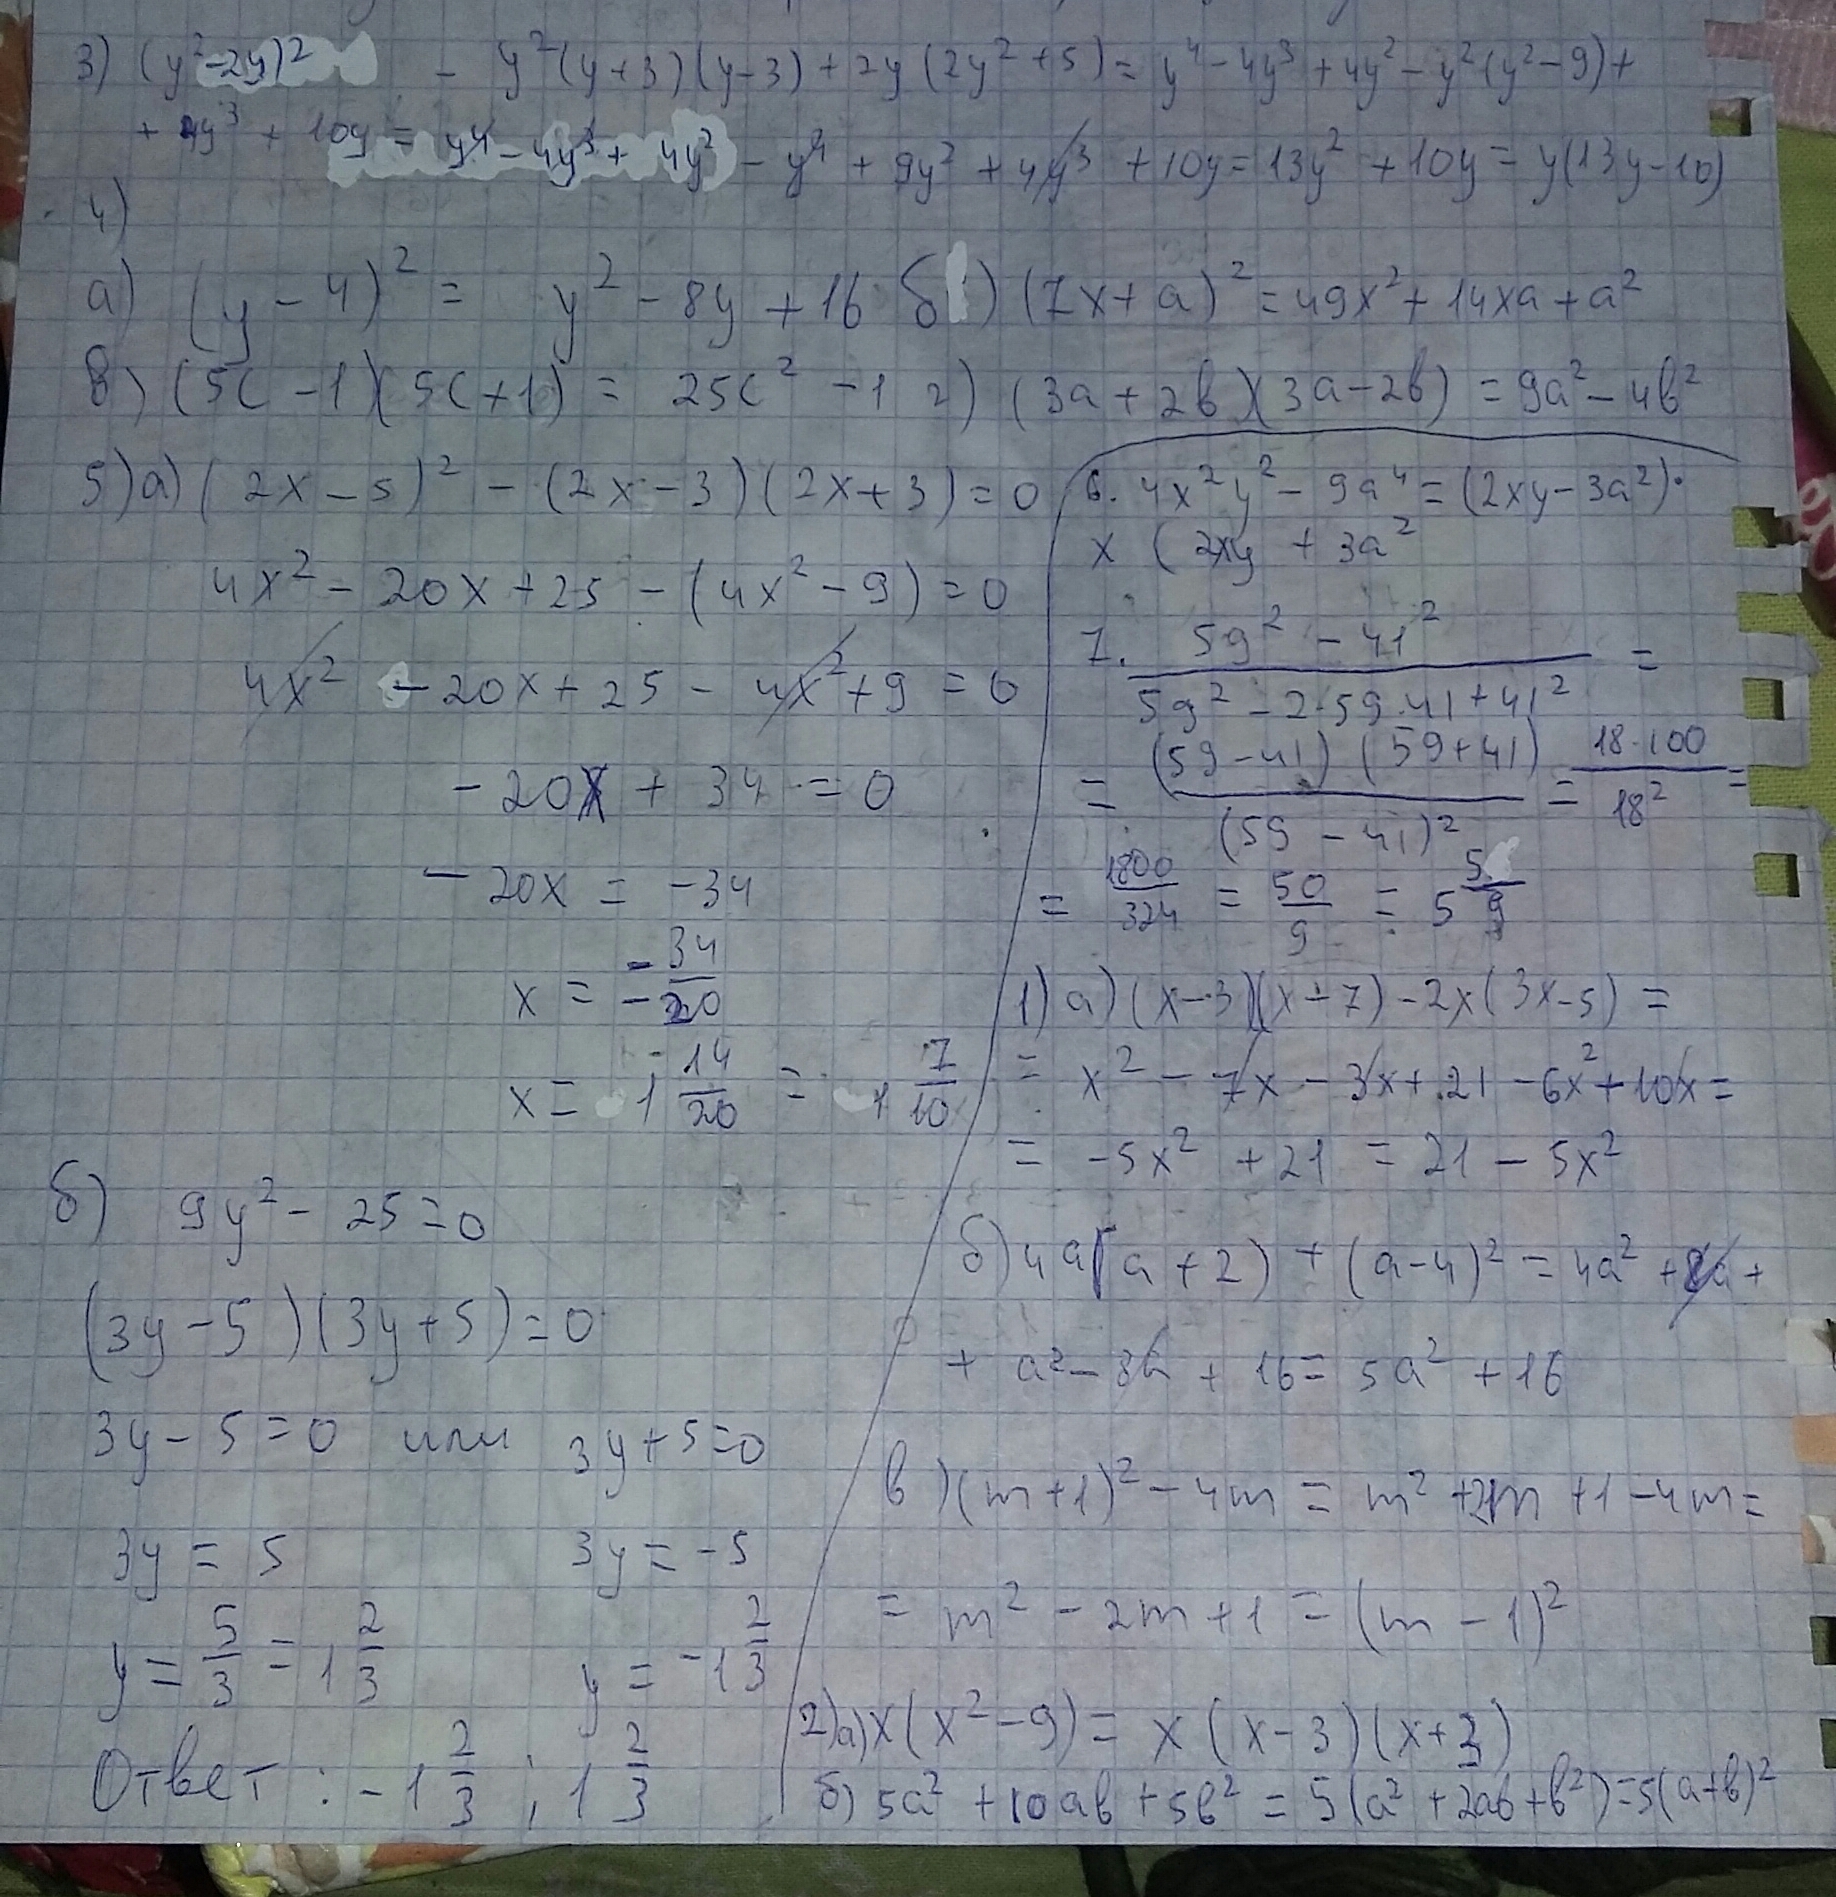 3) (y²-2y)² - y²(y+3)(y-3)+2y(2y²+5)= y⁴-4y³+4y²-y²(y²-9)+
+ 4y³ + 10y = y⁴-4y³+ 4y² - y⁴ + 9y² + 4y³ +10y=13y² +10y= y(13y-10)
4)
а) (y-4)² = y² - 8y + 16 б) (7x+a)²=49x²+14xa+a²
в) (5c-1)(5c+1) = 25c² -1 г) (3a+2b)(3a-2b) = 9a²-4b²
5)а) (2x-5)² - (2x-3)(2x+3)=0
4x²-20x+25-(4x²-9)=0
4x² -20x+25-4x²+9=0
-20x + 34 = 0
-20x = -34
x = -34/-20
x = 1 14/20 = 1 7/10
б) 9y² - 25=0
(3y-5)(3y+5)=0
3y-5=0 или 3y+5=0
3y = 5 3y = -5
y = 5/3 = 1 2/3 y = -1 2/3
Ответ: -1 2/3 ; 1 2/3
6. 4x²y²-9a⁴=(2xy-3a²)·
x (2xy + 3a²
7. 59² - 41² / 59²-2·59·41+41² =
= (59-41)(59+41) / (59-41)² = 18·100 / 18² =
= 1800/324 = 50/9 = 5 5/9
1) а) (x-3)(x-7)-2x(3x-5) =
= x² - 7x - 3x+21-6x²+10x=
= -5x² +21 = 21-5x²
б) 4a(a+2) + (a-4)² = 4a² +8a+
+ a²-8a + 16= 5a² +16
в) (m+1)²-4m = m² +2m +1-4m=
= m² - 2m+1 = (m-1)²
2)а) x(x²-9)= x(x-3)(x+3)
б) 5a² +10ab+5b² = 5(a²+2ab+b²)=5(a+b)²